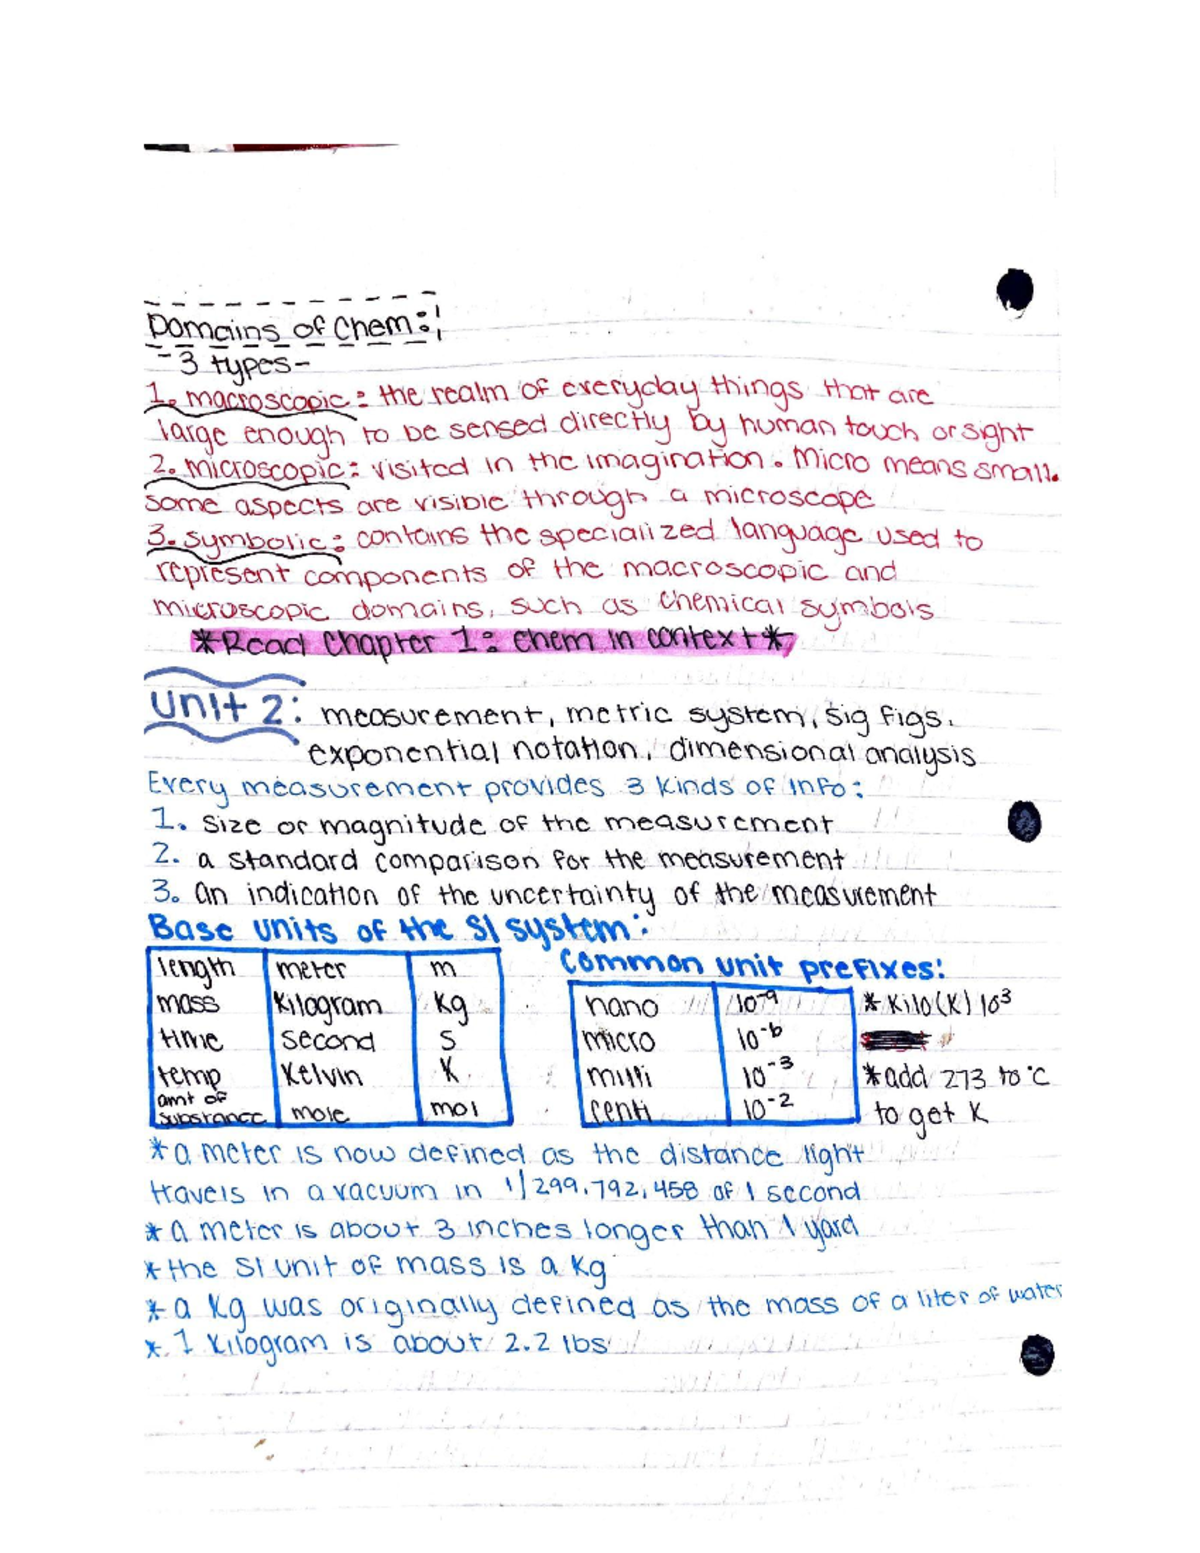 Domains of Chem:
-3 types-
1. macroscopic: the realm of everyday things that are
large enough to be sensed directly by human touch or sight
2. microscopic: visited in the imagination. Micro means small.
some aspects are visible through a microscope
3. symbolic: contains the specialized language used to
represent components of the macroscopic and
microscopic domains, such as chemical symbols
*Read Chapter 1: chem in context*
Unit 2: measurement, metric system, sig figs.
exponential notation, dimensional analysis
Every measurement provides 3 kinds of info:
1. size or magnitude of the measurement
2. a standard comparison for the measurement
3. an indication of the uncertainty of the measurement
Base units of the SI system:
Common unit prefixes:
length meter m
mass Kilogram Kg
time second s
temp Kelvin K
amt of substance mole mol
nano 10⁻⁹
micro 10⁻⁶
milli 10⁻³
centi 10⁻²
* Kilo (K) 10³
*add 273 to °C
to get K
*a meter is now defined as the distance light
travels in a vacuum in 1/299,792,458 of 1 second
*a meter is about 3 inches longer than 1 yard
*the SI unit of mass is a Kg
*a Kg was originally defined as the mass of a liter of water
*1 Kilogram is about 2.2 lbs